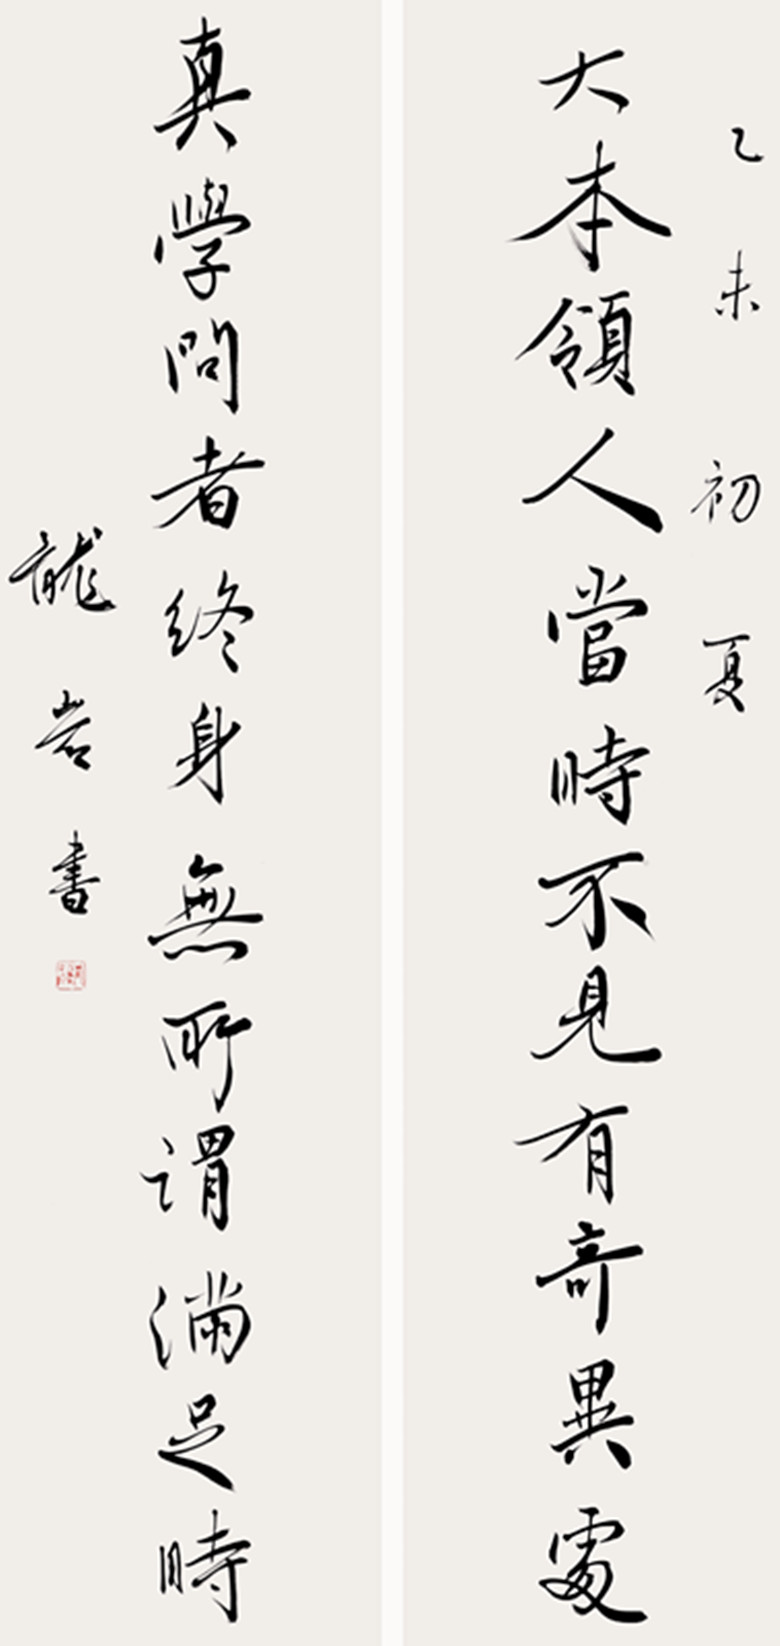 乙未初夏
大本領人當時不見有奇異處
真學問者終身無所謂滿足時
龍岩書